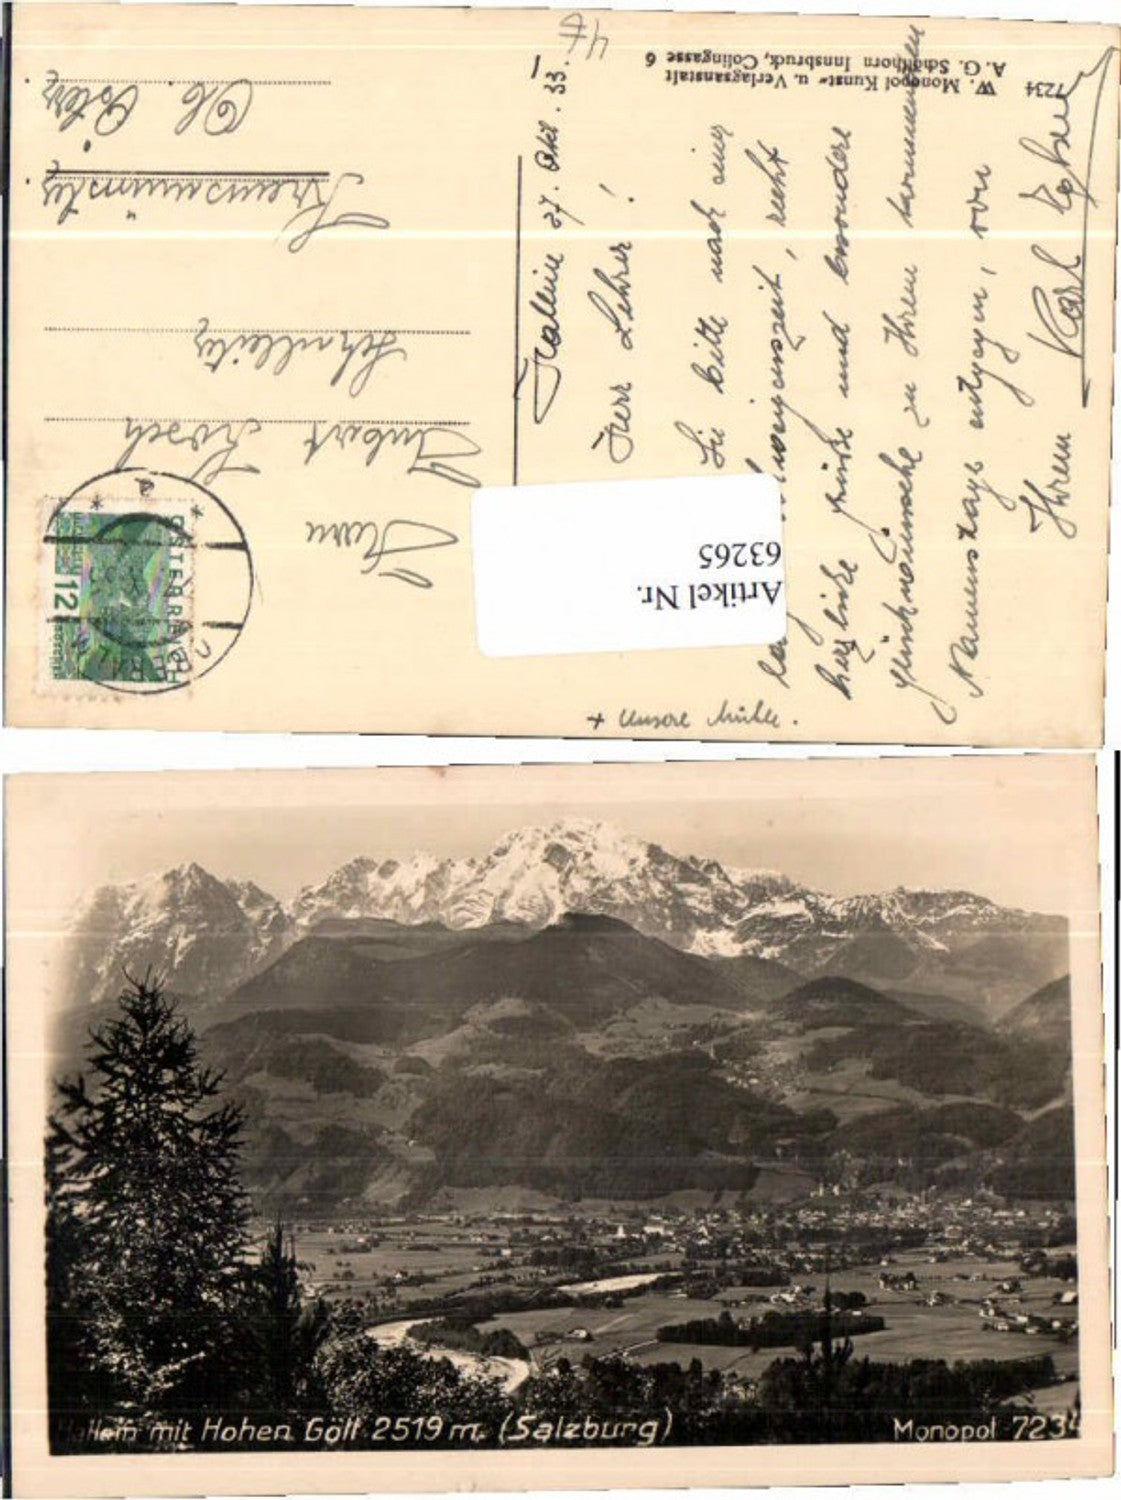 Hallein 27. Okt. 33.
Herr Lehrer!
Sie bitte nach einer
recht
herzliche Grüße und besondere
Glückwünsche zu Ihrem kommenden
Namenstage entgegen, von
Ihrem Karl
+ Unsere Mühle.
7234 W. Monopol Kunst- u. Verlagsanstalt
A. G. Schöllhorn Innsbruck, Colingasse 6
ÖSTERREICH
12
Herrn
Hubert
Schulleiter
Kremsmünster
Ob. Österr.
Artikel Nr.
63265
Hallein mit Hohen Göll 2519 m. (Salzburg)
Monopol 7234